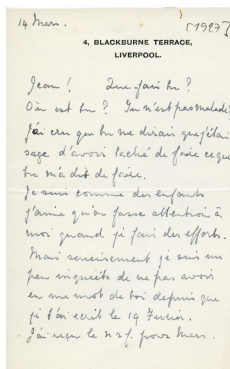 14 Mars.
[1927]
4, BLACKBURNE TERRACE,
LIVERPOOL.
Jean! Que fais tu?
Où est tu? Tu n'est pas malade?
J'ai cru que tu me dirais que j'étais
sage d'avoir taché de faire ce que
tu m'a dit de faire.
Je suis comme des enfants
j'aime qu'on fasse attention à
moi quand je fais des efforts.
Mais serieusement je suis un
peu inquiète de ne pas avoir
eu un mot de toi depuis que
je t'ai ecrit le 19 Fevrier.
J'ai reçu le n.r.f. pour Mars.